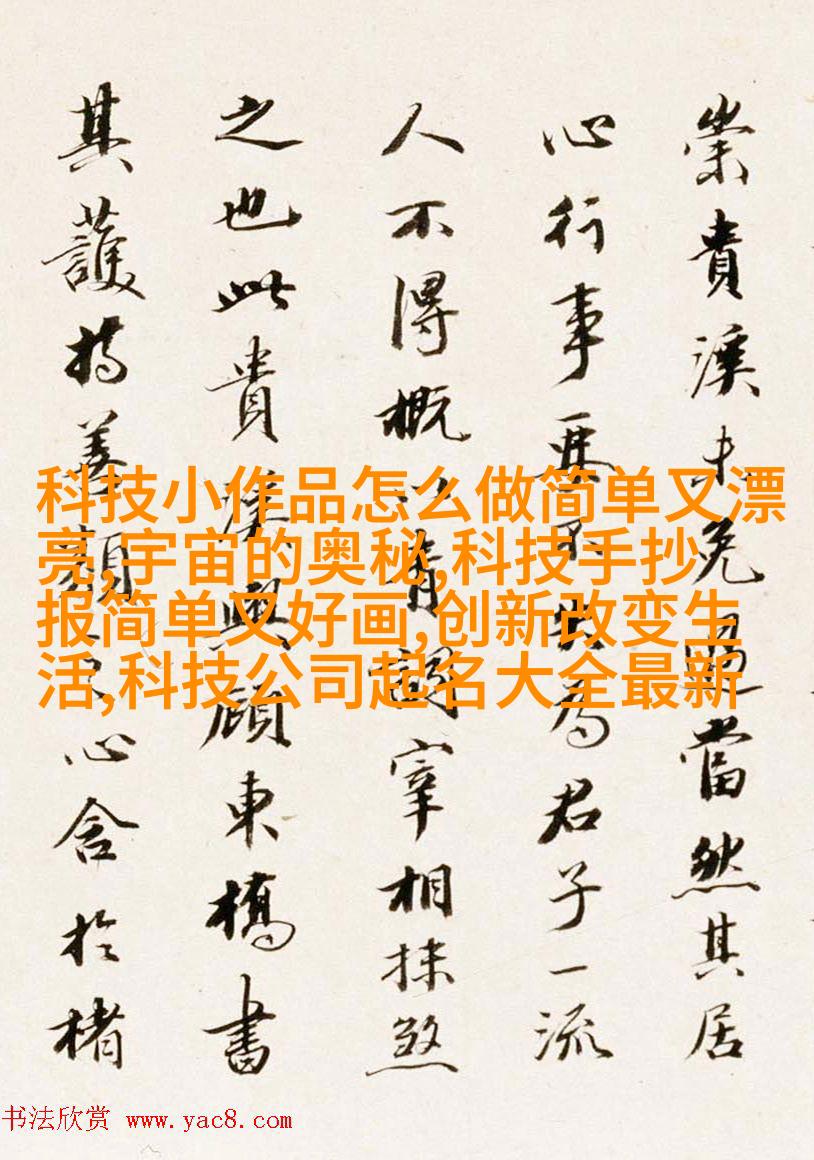 崇貴溪未免過當然其居
心行事要不失為君子一流
人不得概以青詞宰相抹煞
之也此貴溪與顧東橋書
其護持善類之心含於楮
科技小作品怎么做简单又漂
亮,宇宙的奥秘,科技手抄
报简单又好画,创新改变生
活,科技公司起名大全最新
书法欣赏 www.yac8.com